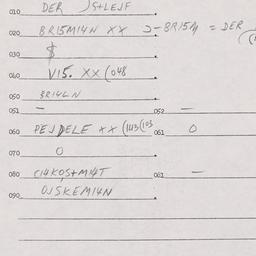 010 DER )S+LEJF
020 BR15M14N XX )-BR15M = DER
030 $
040 V15. XX (048
050 BR14LN
051 — 052 —
060 PEJDELE XX (143(103 061 0
070 0
080 C14KOS+M14T 081 —
090 OJSKEM14N